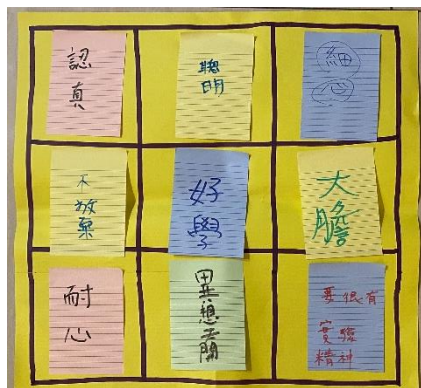 認真
聰明
細心
不放棄
好學
大膽
耐心
異想天開
要很有
實驗
精神